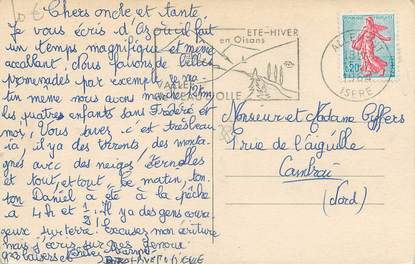 Chers oncle et tante
Je vous écris d'Oz où il fait
un temps magnifique et même
accablant. Nous faisons de belles
promenades par exemple ce ma-
tin même nous avons marché
les quatres enfants sans Frédéric et
moi. Vous savez c'est très beau
ici, il y a des torrents des monta-
gnes avec des neiges éternelles
et tout, et tout. Ce matin, ton-
ton Daniel a été à la pêche
à 4h et ½. Il y a des gens coura-
geux sur terre. Excusez mon écriture
mais j'écris sur mes genoux.
ETE-HIVER
en Oisans
ALLEMONT
ISERE
Monsieur et Madame Cyffers
1 rue de l'aiguille
Cambrai
(Nord)